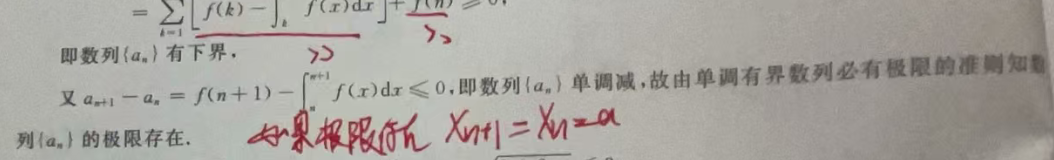 = \sum_{k=1} [f(k) - \int_k f(x)dx] + f(n) ≥ 0,
≥0 ≥0
即数列{aₙ}有下界.
又 aₙ₊₁ - aₙ = f(n+1) - \int_n^{n+1} f(x)dx ≤ 0,即数列{aₙ}单调减,故由单调有界数列必有极限的准则知数
列{aₙ}的极限存在. 如果极限存在 Xₙ₊₁ = Xₙ = a